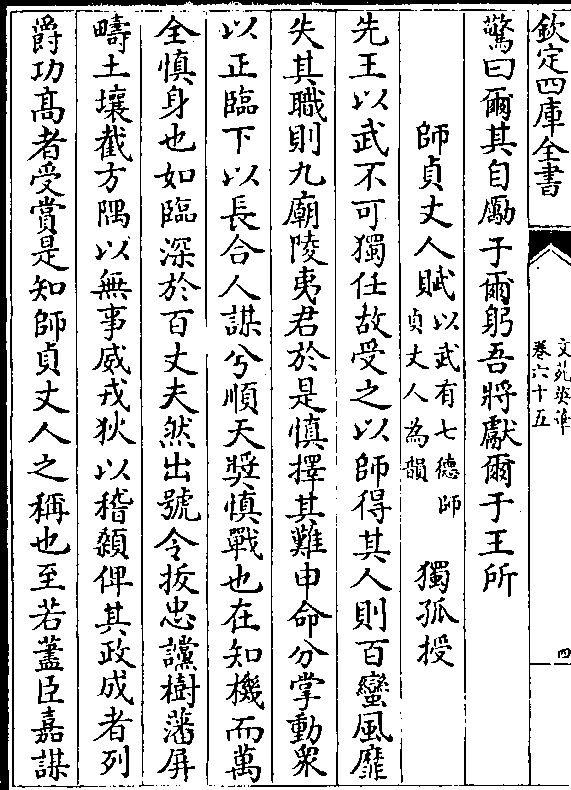 欽定四庫全書
文苑英華
卷六十五
四
驚曰爾其自勵于爾躬吾將獻爾于王所
師貞丈人賦以武有七德師
貞丈人為韻
獨孤授
先王以武不可獨任故受之以師得其人則百蠻風靡
失其職則九廟陵夷君於是慎擇其難申命分掌動衆
以正臨下以長合人謀兮順天奬慎戰也在知機而萬
全慎身也如臨深於百丈夫然出號令扳忠讜樹藩屏
疇土壤截方隅以無事威戎狄以稽顙俾其政成者列
爵功髙者受賞是知師貞丈人之稱也至若藎臣嘉謀